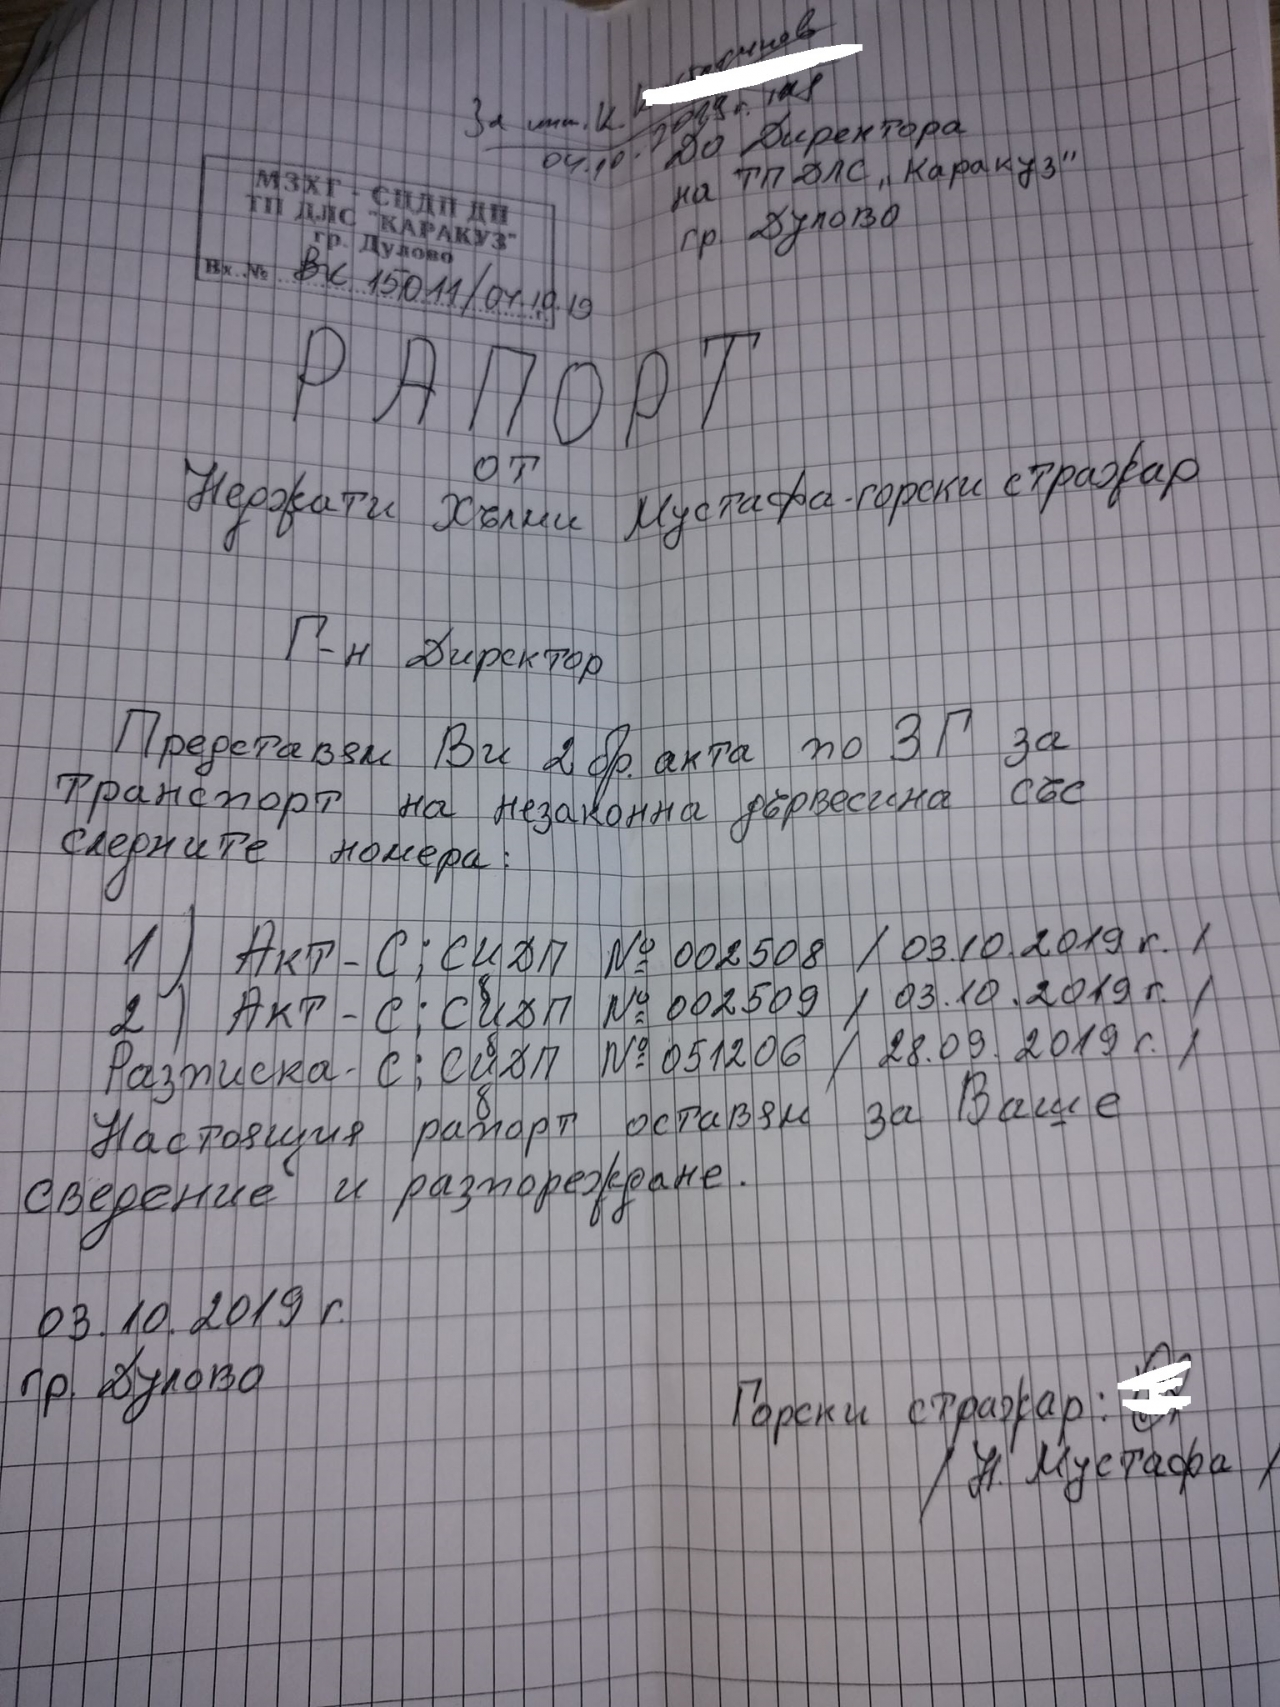 За инж. К.
04.10.2019 г.
До Директора
на ТП ДЛС „Каракуз"
гр Дулово
МЗХГ - СЦДП ДП
ТП ДЛС "КАРАКУЗ"
гр. Дулово
Вх. № ВК 15011/04.10.19
г.
РАПОРТ
от
Неджати Хълми Мустафа-горски стражар
Г-н Директор
Представям Ви 2 бр. акта по ЗГ за
транспорт на незаконна дървесина със
следните номера:
1) Акт-С; СИДП № 002508 /03.10.2019 г./
2) Акт-С; СИДП № 002509 /03.10.2019 г./
Разписка-С; СИДП № 051206 /28.09.2019 г./
Настоящия рапорт оставям за Ваше
сведение и разпореждане.
03.10.2019 г.
гр. Дулово
Горски стражар:
/Н. Мустафа/